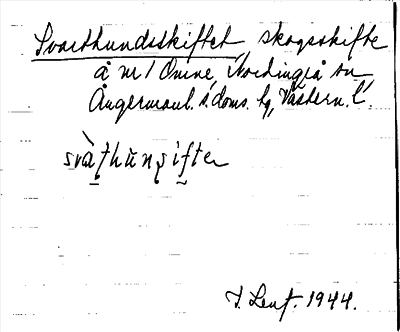 Svarthundsskiftet, skogsskifte
å nr 1 Omne, Nordingrå sn,
Ångermanl. s. doms. hg, Västern. l.
svàthŭnsiftes
1944.